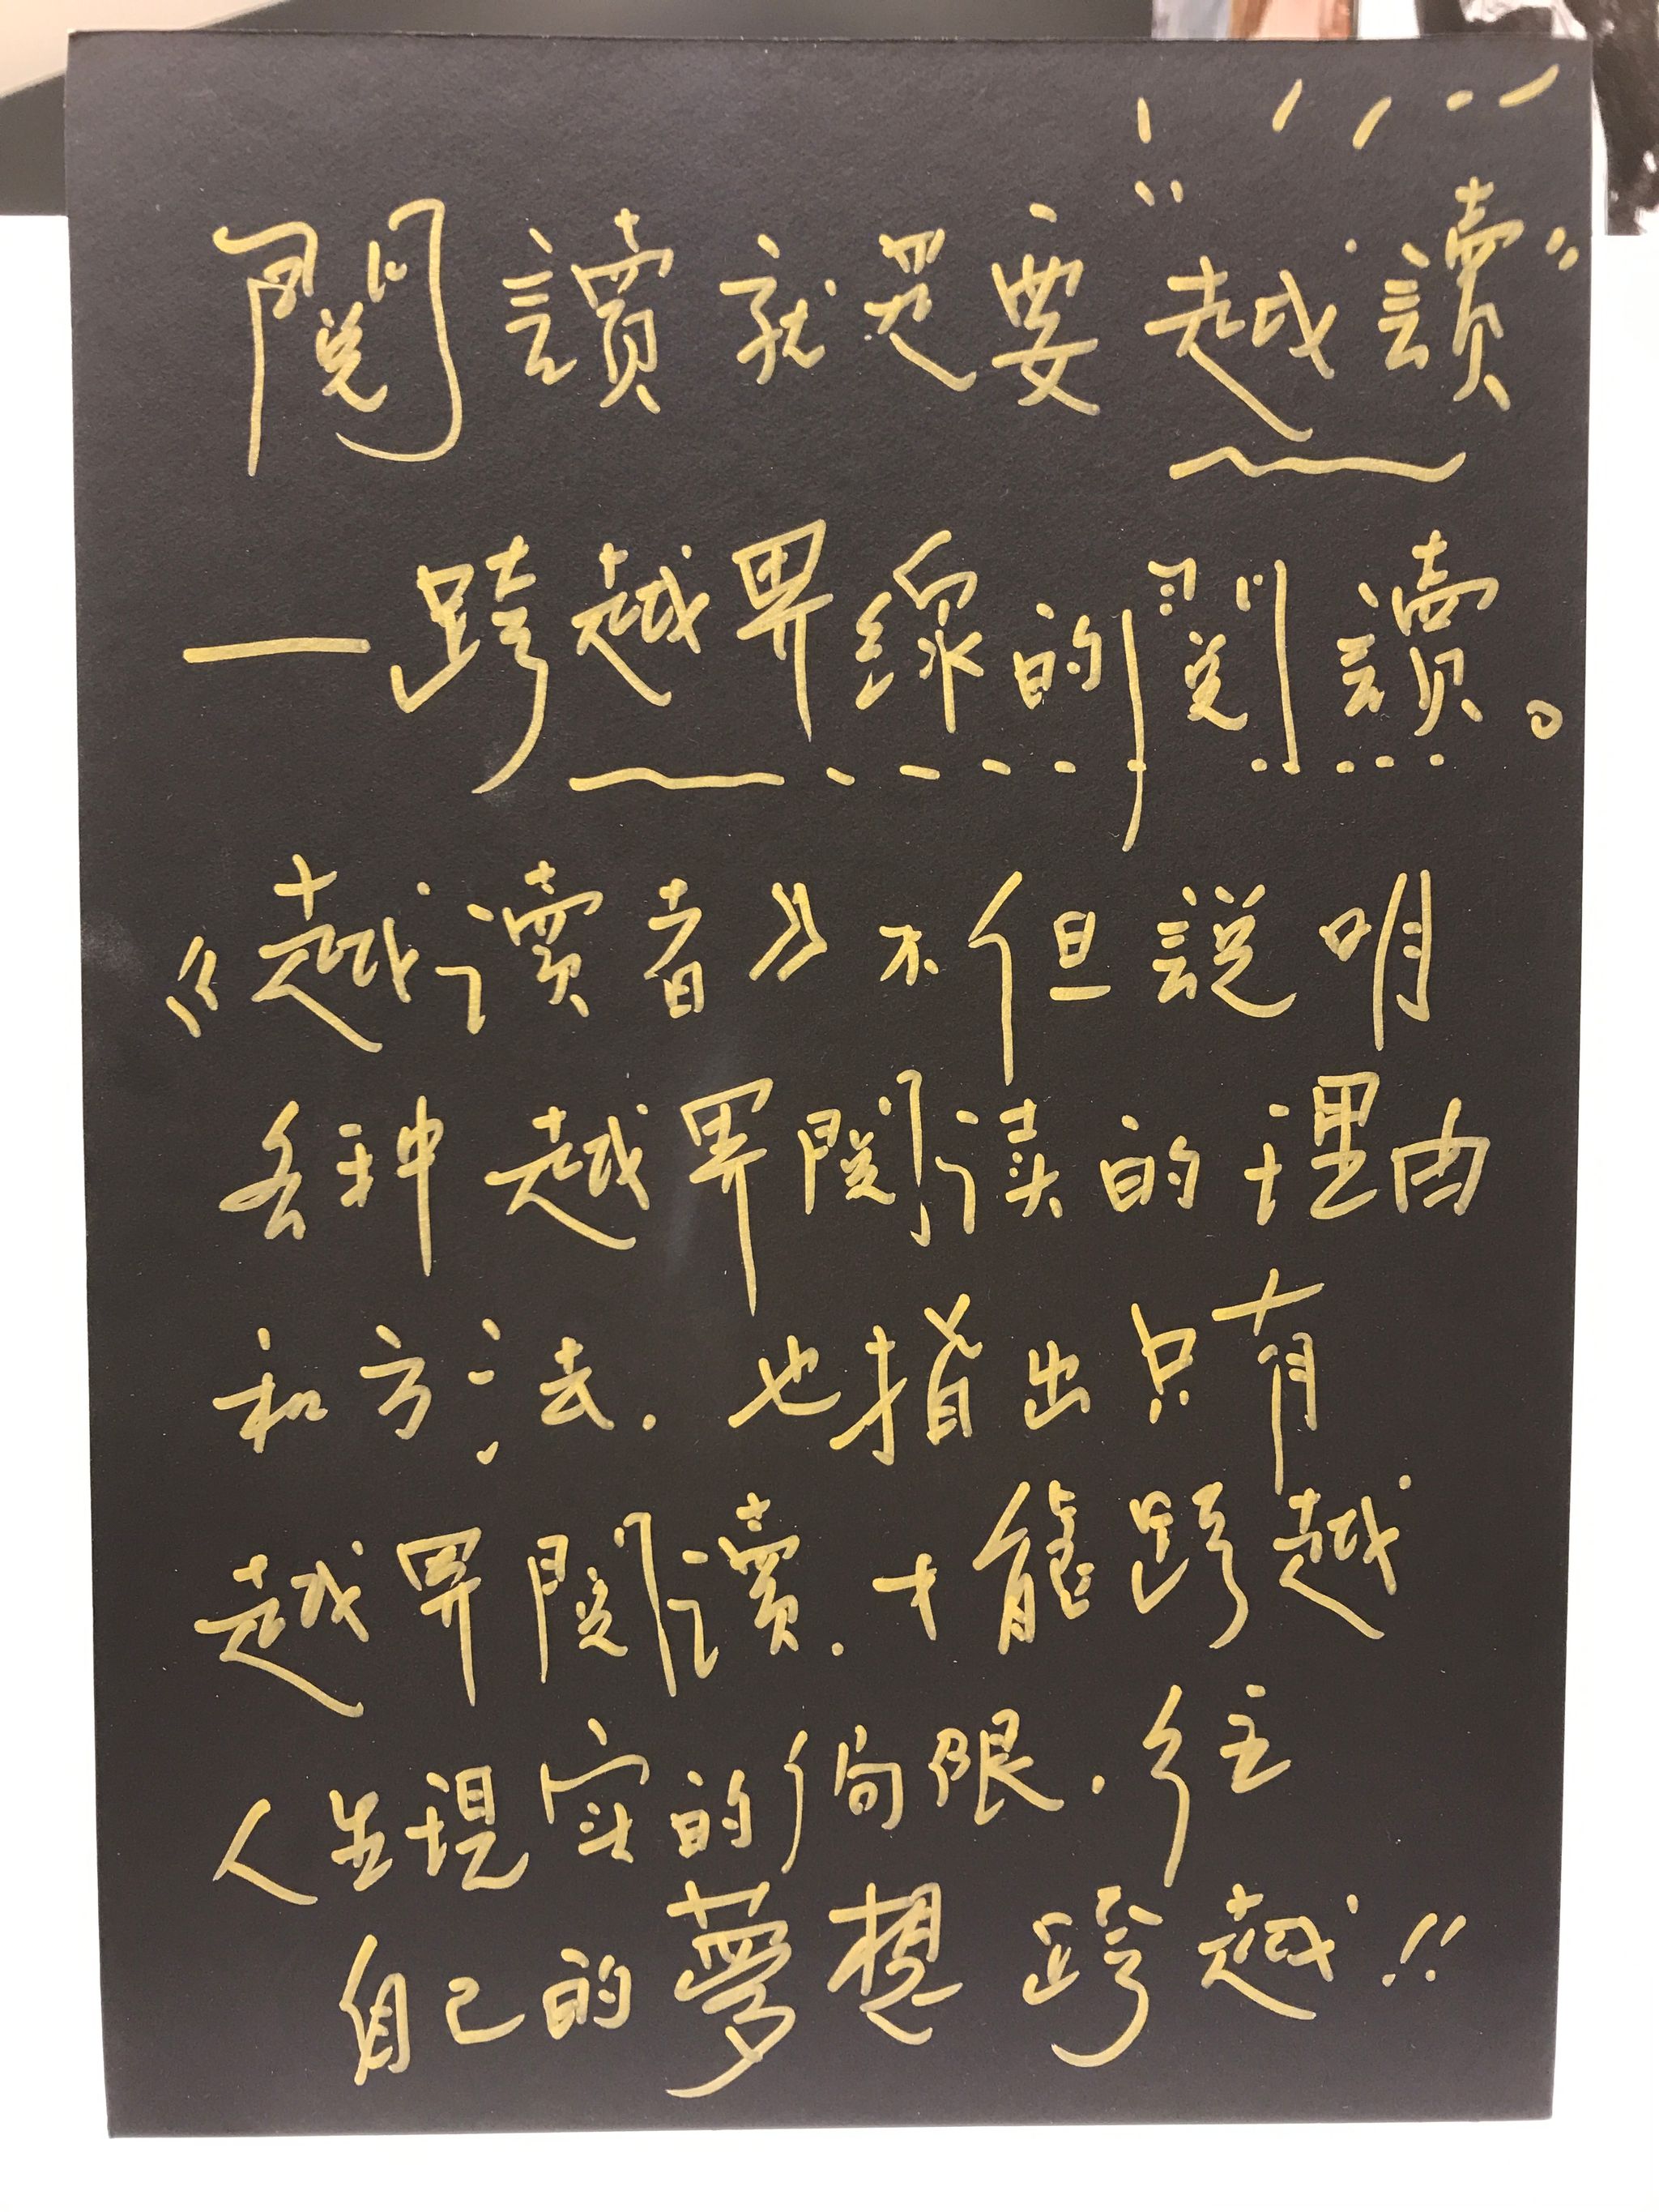 閱讀就是要“越讀”
—跨越界線的閱讀。
《越讀者》不但說明
各種越界閱读的理由
和方法.也指出只有
越界閱讀.才能跨越
人生現实的侷限.往
自己的夢想跨越!!